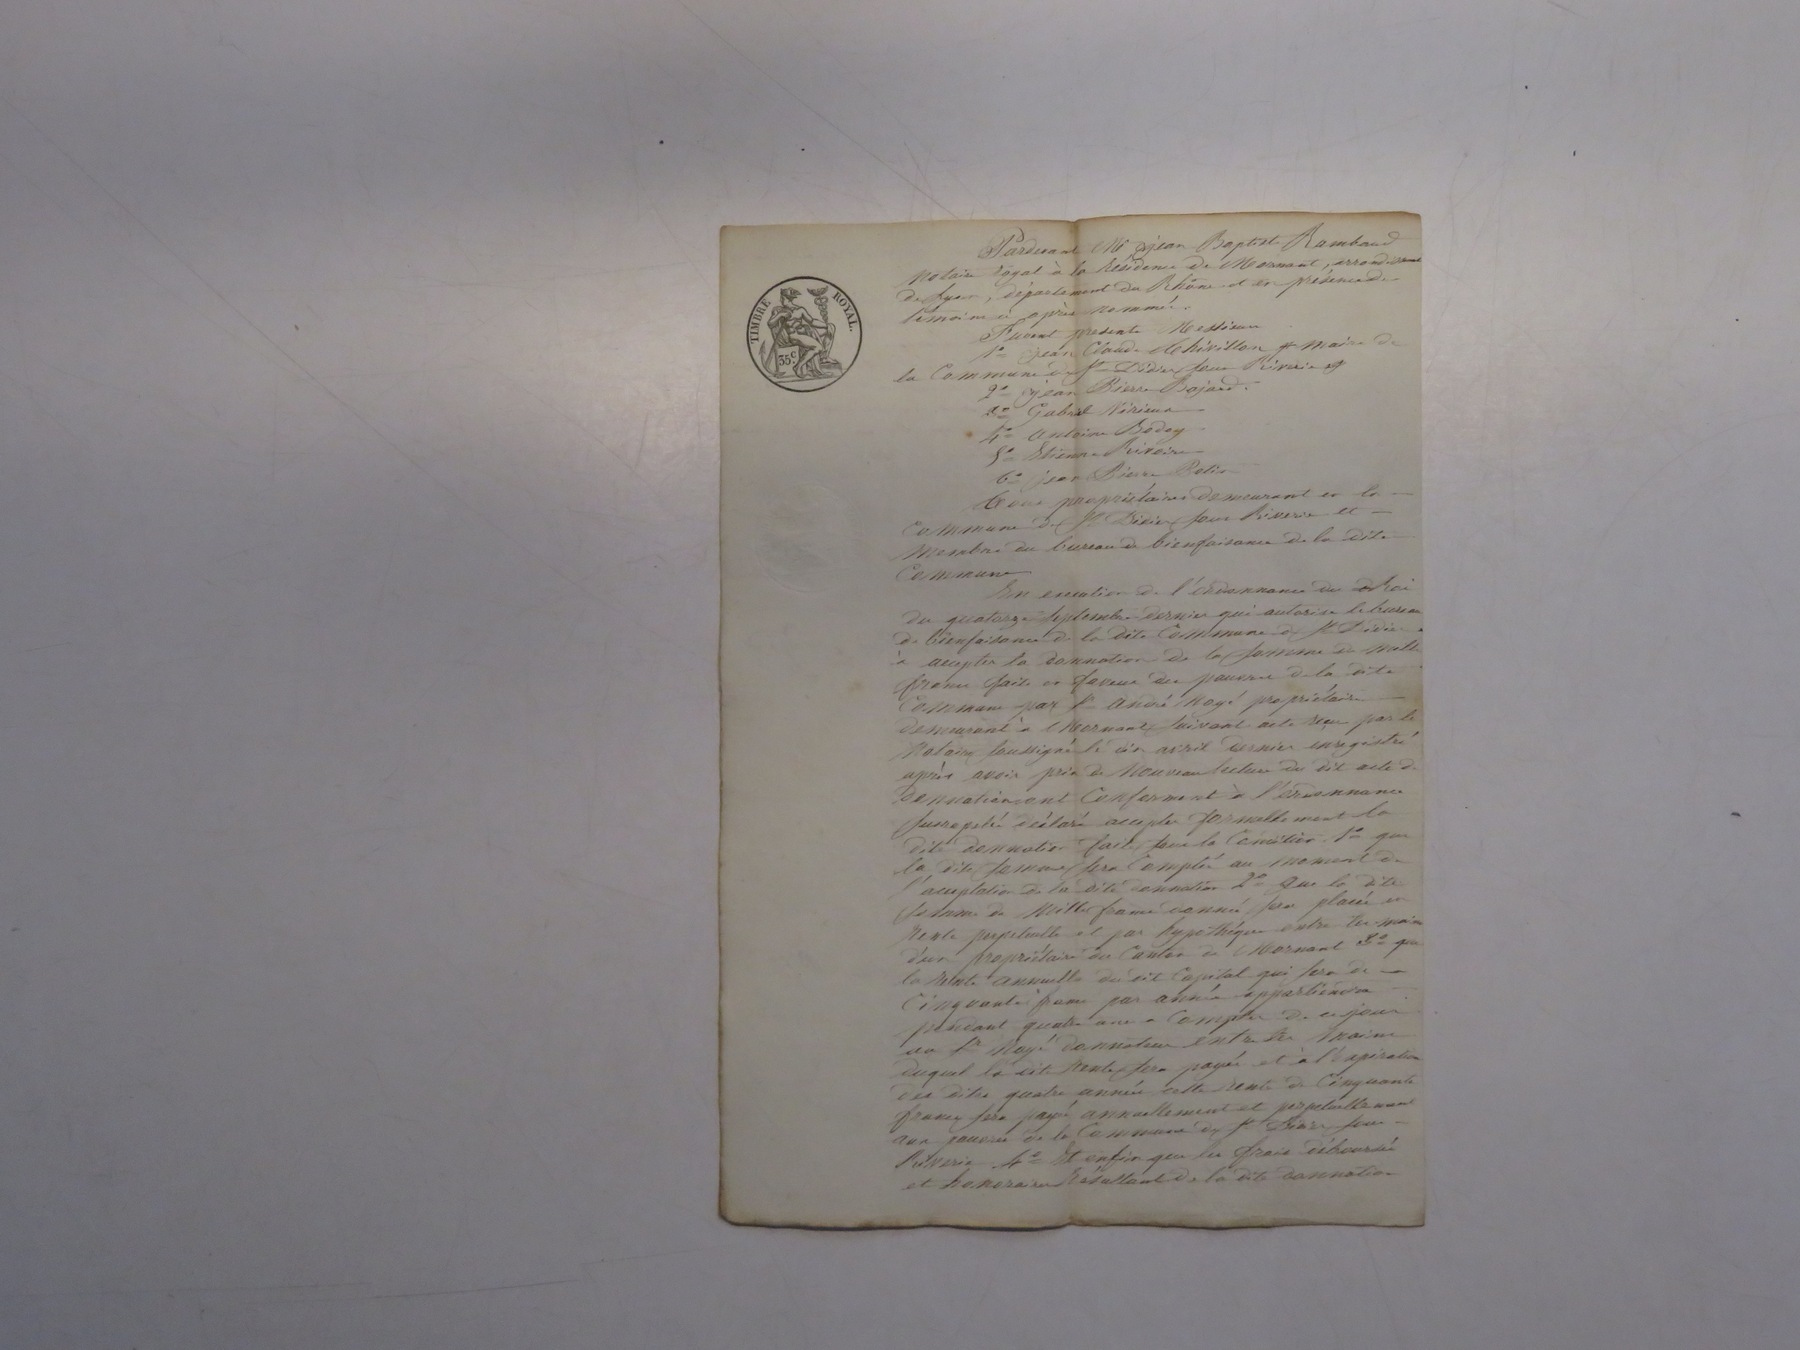 TIMBRE ROYAL.
35c.
Pardevant Me jean Baptiste Rambaud
Notaire royal à la résidence de Mornant, arrondissement
de Lyon, département du Rhône et en présence de
témoins ci après nommés.
Furent présents Messieurs
1o jean Claude Maire de
la Commune de St Didier sous Riverie
2o jean Pierre Bajard.
3o Gabriel
4o antoine Bodoy
5o Etienne Rivoire
6o jean Pierre
Tous propriétaires demeurant en la
Commune de St Didier sous Riverie et
Membres du bureau de bienfaisance de la dite
Commune
En execution de l'ordonnance du Roi
du quatorze septembre dernier qui autorise le bureau
de bienfaisance de la dite Commune de St Didier
à accepter la donnation de la somme de mille
francs faite en faveur des pauvres de la dite
Commune par Sr André propriétaire
demeurant à Mornant suivant acte reçu par le
Notaire soussigné le avril dernier enregistré
après avoir pris de nouveau lecture du dit acte de
donnation ont Conforment à l'ordonnance
déclaré accepter formellement la
dite donnation faite sous la Condition 1o que
la dite somme sera Comptée au moment de
l'acceptation de la dite donnation 2o Que la dite
somme de Mille francs donnée sera placée en
rente perpetuelle et par hypothèque entre les mains
d'un propriétaire du Canton de Mornant 3o que
la rente annuelle du dit Capital qui sera de
Cinquante francs par année appartiendra
pendant quatre ans a Compter de ce jour
au Sr donnateur entre les mains
duquel la dit rente sera payée et à l'expiration
des dites quatre années cette rente de Cinquante
francs sera payée annuellement et perpetuellement
aux pauvres de la Commune de St Didier sous
Riverie 4o Et enfin que les frais déboursés
et honoraires résultant de la dite donnation